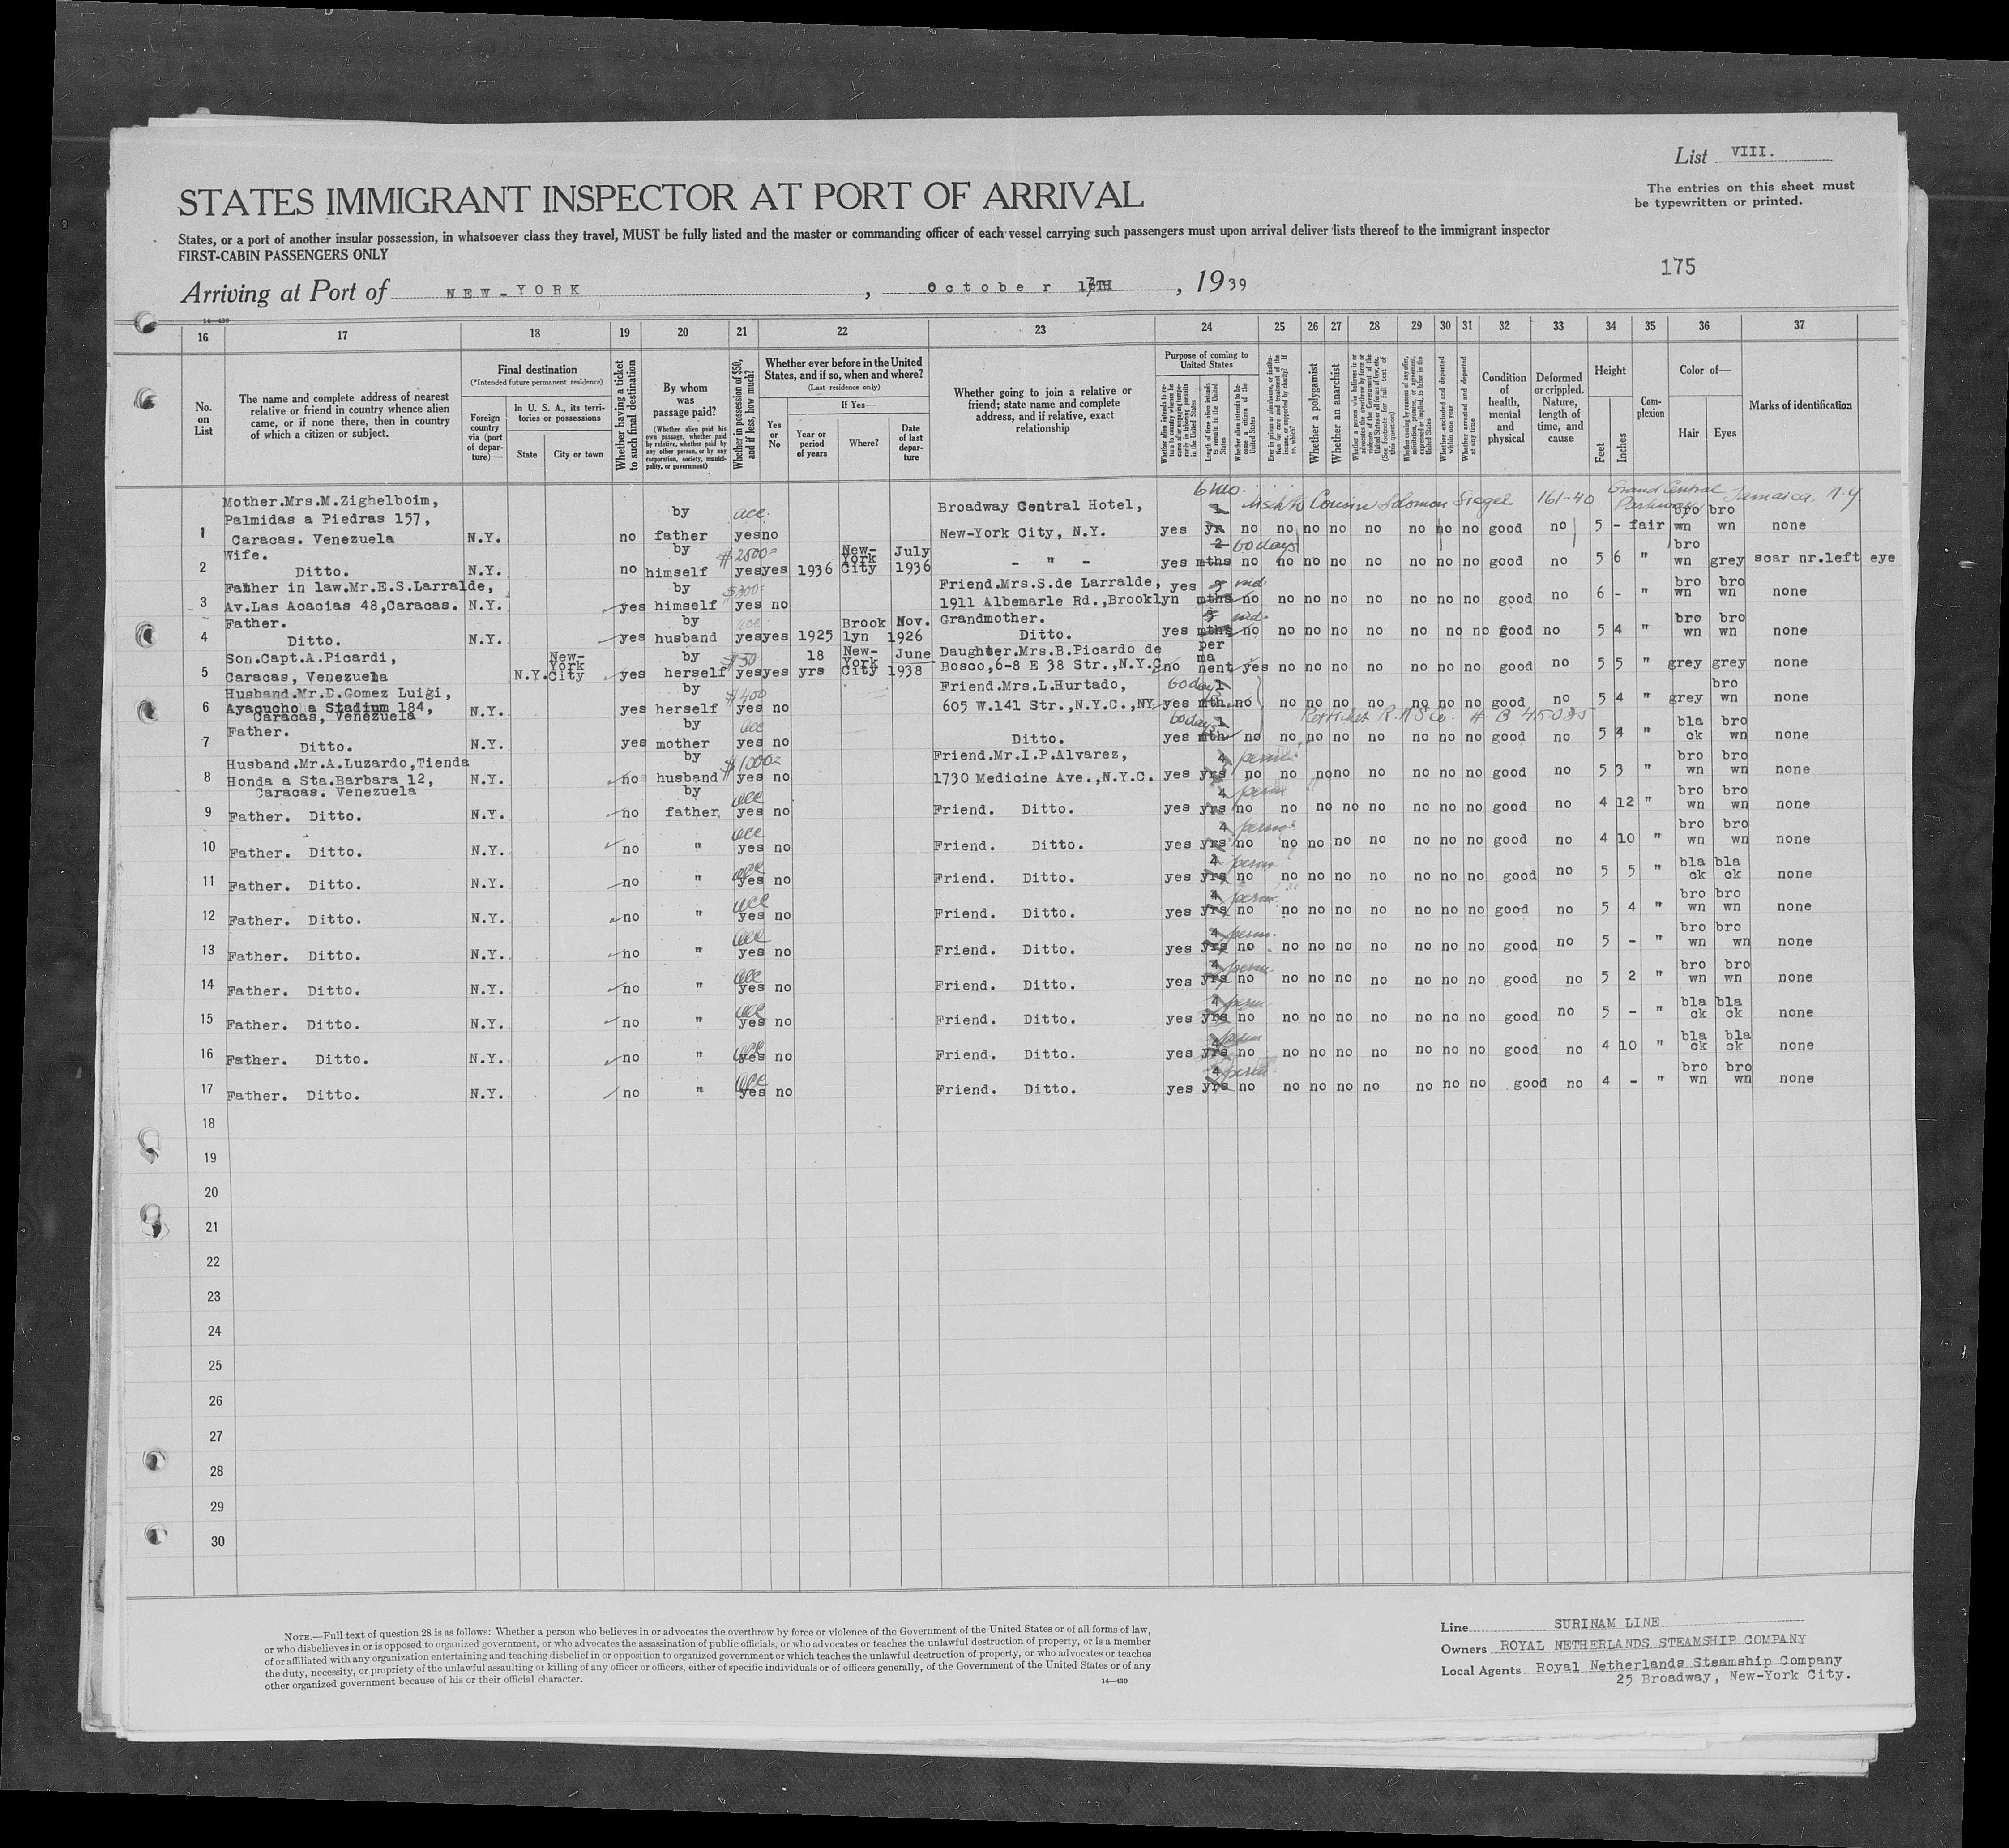 List VIII.
The entries on this sheet must
be typewritten or printed.
STATES IMMIGRANT INSPECTOR AT PORT OF ARRIVAL
States, or a port of another insular possession, in whatsoever class they travel, MUST be fully listed and the master or commanding officer of each vessel carrying such passengers must upon arrival deliver lists thereof to the immigrant inspector
FIRST-CABIN PASSENGERS ONLY
175
Arriving at Port of NEW-YORK, October TH, 1939
14—430
16 17 18 19 20 21 22 23 24 25 26 27 28 29 30 31 32 33 34 35 36 37
No. on List
The name and complete address of nearest relative or friend in country whence alien came, or if none there, then in country of which a citizen or subject.
Final destination
(*Intended future permanent residence)
Foreign country via (port of departure)—
In U. S. A., its territories or possessions
State
City or town
Whether having a ticket to such final destination
By whom was passage paid?
(Whether alien paid his own passage, whether paid by relative, whether paid by any other person, or by any corporation, society, municipality, or government)
Whether in possession of $50, and if less, how much?
Whether ever before in the United States, and if so, when and where?
(Last residence only)
Yes or No
If Yes—
Year or period of years
Where?
Date of last departure
Whether going to join a relative or friend; state name and complete address, and if relative, exact relationship
Purpose of coming to United States
Length of time alien intends to remain in the United States
Whether a polygamist
Whether an anarchist
Whether arrested and deported at any time
Condition of health, mental and physical
Deformed or crippled. Nature, length of time, and cause
Height
Feet
Inches
Complexion
Color of—
Hair
Eyes
Marks of identification
6 mo. Cousin Solomon Siegel 161-40 Grand Central Parkway Jamaica. N.Y.
1 Mother.Mrs.M.Zighelboim, Palmidas a Piedras 157, Caracas. Venezuela N.Y. no by father yes no Broadway Central Hotel, New-York City, N.Y. yes 1 yr no no no no no no no no good no 5 - fair brown brown none
2 Wife. Ditto. N.Y. no by himself $2800 yes yes 1936 New-York City July 1936 - " - yes 2 mths 60 days no no no no no no no no good no 5 6 " brown grey scar nr.left eye
3 Father in law.Mr.E.S.Larralde, Av.Las Acacias 48,Caracas. N.Y. yes by himself $300 yes no Friend.Mrs.S.de Larralde, 1911 Albemarle Rd.,Brooklyn yes mths no no no no no no no no good no 6 - " brown brown none
4 Father. Ditto. N.Y. yes by husband yes yes 1925 Brooklyn Nov. 1926 Grandmother. Ditto. yes mths no no no no no no no no good no 5 4 " brown brown none
5 Son.Capt.A.Picardi, Caracas, Venezuela N.Y. New-York City yes by herself $50 yes yes 18 yrs New-York City June 1938 Daughter.Mrs.B.Picardo de Bosco,6-8 E 38 Str.,N.Y.C. no permanent yes no no no no no no no good no 5 5 " grey grey none
6 Husband.Mr.D.Gomez Luigi, Ayacucho a Stadium 184, Caracas, Venezuela N.Y. yes by herself $400 yes no Friend.Mrs.L.Hurtado, 605 W.141 Str.,N.Y.C.,NY yes 60 days 1 mth. no no no no no no no no good no 5 4 " grey brown none
7 Father. Ditto. N.Y. yes by mother yes no Ditto. yes 60 days 1 mth. no no no no no no no no good no 5 4 " black brown none
8 Husband.Mr.A.Luzardo,Tienda Honda a Sta.Barbara 12, Caracas. Venezuela N.Y. no by husband $1000 yes no Friend.Mr.I.P.Alvarez, 1730 Medicine Ave.,N.Y.C. yes 4 yrs perm. no no no no no no no no good no 5 3 " brown brown none
9 Father. Ditto. N.Y. no by father yes no Friend. Ditto. yes 4 yrs perm no no no no no no no no good no 4 12 " brown brown none
10 Father. Ditto. N.Y. no " yes no Friend. Ditto. yes 4 yrs perm. no no no no no no no no good no 4 10 " brown brown none
11 Father. Ditto. N.Y. no " yes no Friend. Ditto. yes 4 yrs perm no no no no no no no no good no 5 5 " black black none
12 Father. Ditto. N.Y. no " yes no Friend. Ditto. yes 4 yrs perm. no no no no no no no no good no 5 4 " brown brown none
13 Father. Ditto. N.Y. no " yes no Friend. Ditto. yes 4 yrs perm. no no no no no no no no good no 5 - " brown brown none
14 Father. Ditto. N.Y. no " yes no Friend. Ditto. yes 4 yrs perm. no no no no no no no no good no 5 2 " brown brown none
15 Father. Ditto. N.Y. no " yes no Friend. Ditto. yes 4 yrs perm no no no no no no no no good no 5 - " black black none
16 Father. Ditto. N.Y. no " yes no Friend. Ditto. yes 4 yrs perm no no no no no no no no good no 4 10 " black black none
17 Father. Ditto. N.Y. no " yes no Friend. Ditto. yes 4 yrs perm no no no no no no no no good no 4 - " brown brown none
18
19
20
21
22
23
24
25
26
27
28
29
30
NOTE.—Full text of question 28 is as follows: Whether a person who believes in or advocates the overthrow by force or violence of the Government of the United States or of all forms of law,
or who disbelieves in or is opposed to organized government, or who advocates the assassination of public officials, or who advocates or teaches the unlawful destruction of property, or is a member
of or affiliated with any organization entertaining and teaching disbelief in or opposition to organized government or which teaches the unlawful destruction of property, or who advocates or teaches
the duty, necessity, or propriety of the unlawful assaulting or killing of any officer or officers, either of specific individuals or of officers generally, of the Government of the United States or of any
other organized government because of his or their official character.
14—430
Line SURINAM LINE
Owners ROYAL NETHERLANDS STEAMSHIP COMPANY
Local Agents Royal Netherlands Steamship Company
25 Broadway, New-York City.